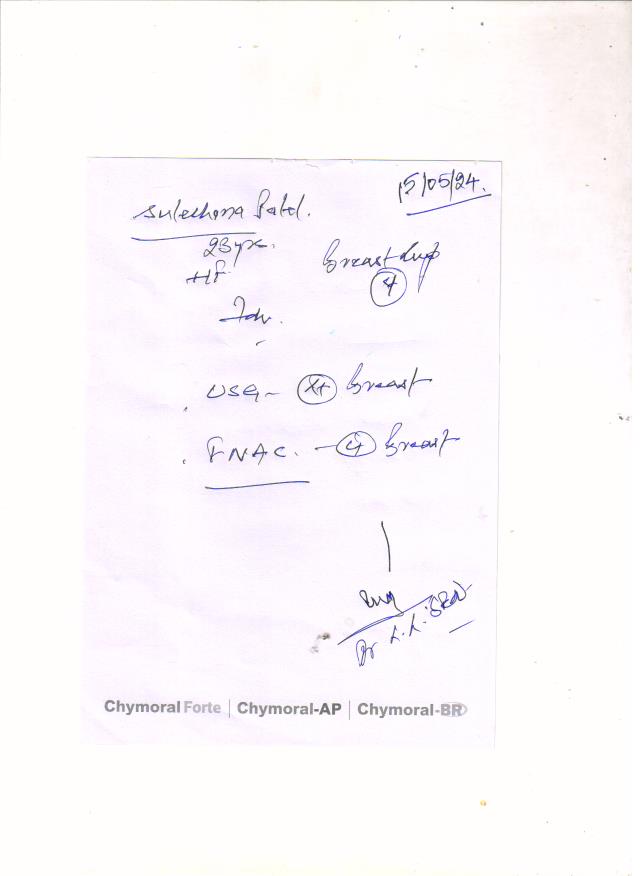 15/05/24.
Sulechona Patel.
23yrs.
Breast lump
Adv.
USG - Breast
FNAC. - Breast
Dr
Chymoral Forte | Chymoral-AP | Chymoral-BR